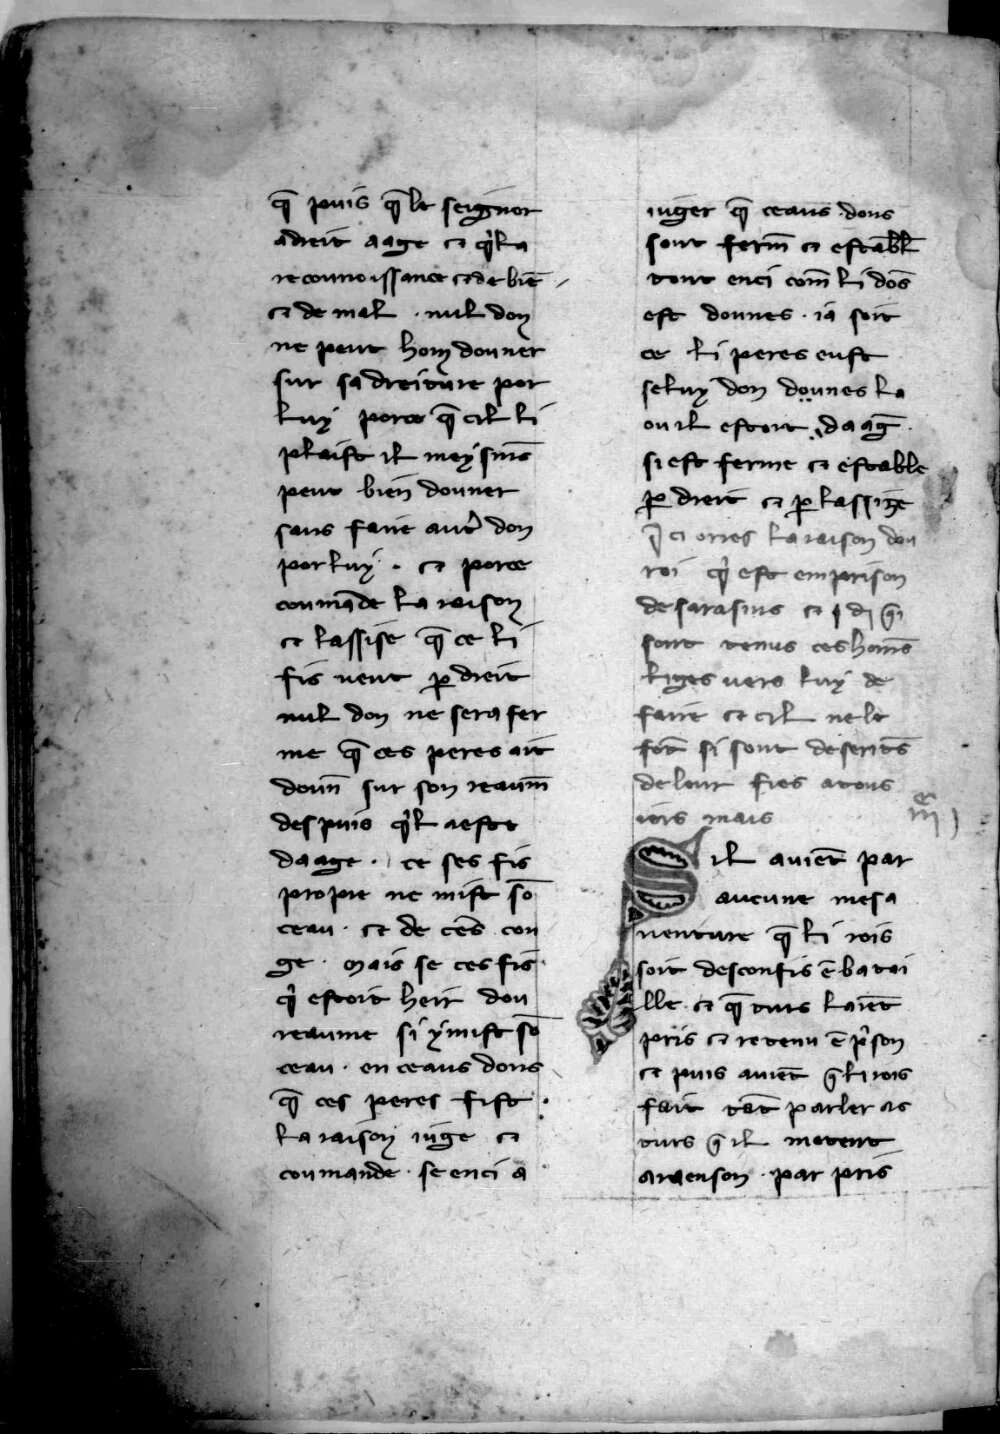 q̄ puis q̄ le seignor
adreit aage ⁊ q̍l a
reconnoissance ⁊ de biē
⁊ de mal · nul don
ne peut hom donner
sur sa dreiture por
luy porce q̄ cil li
plaist il meysmes
peut bien donner
sans faire autr̍ don
por luy · ⁊ porce
coumāde la raison
⁊ lassise q̄ ce li
fis veut ꝑ dreit
nul don ne sera fer
me q̄ ces peres ait
doun̄ sur son reaum̄
despuis q̍l aeste
daage · ce ses fis
propre ne mist sō
ceau · ⁊ de cēs con
ge · mais se ces fis
q̍ estoit heir dou
reaume si ymist sō
ceau · en ceaus dons
q̄ ces peres fist ·
la raison iuge ⁊
coumande · se enci a
iuger q̄ ceaus dons
sont ferm̄ ⁊ establ̄
tout enci com̄ li dōs
est dounes · ia soit
ce li peres eust
seluy don dounes la
ou il estoit daaḡ ·
si est ferme ⁊ estable
ꝑ dreit ⁊ ꝑ lassize
q̄ ci orres la raison dou
roi q̍ est emprison
de sarasins ⁊
sont tenus ces homēs
liges vers luy de
faire ⁊ cil ne le
fōt si sont deseritēs
de leur fies atous
iors mais
Sil auiēt par
aucune mesa
uenture q̄ li rois
soit desconfis ē batai
lle ⁊ q̄ turs laiēt
pris ⁊ retenu ē p̍son
⁊ puis auiēt q̄ li rois
fait tāt parler as
turs q̄ il metent
araenson · par pris